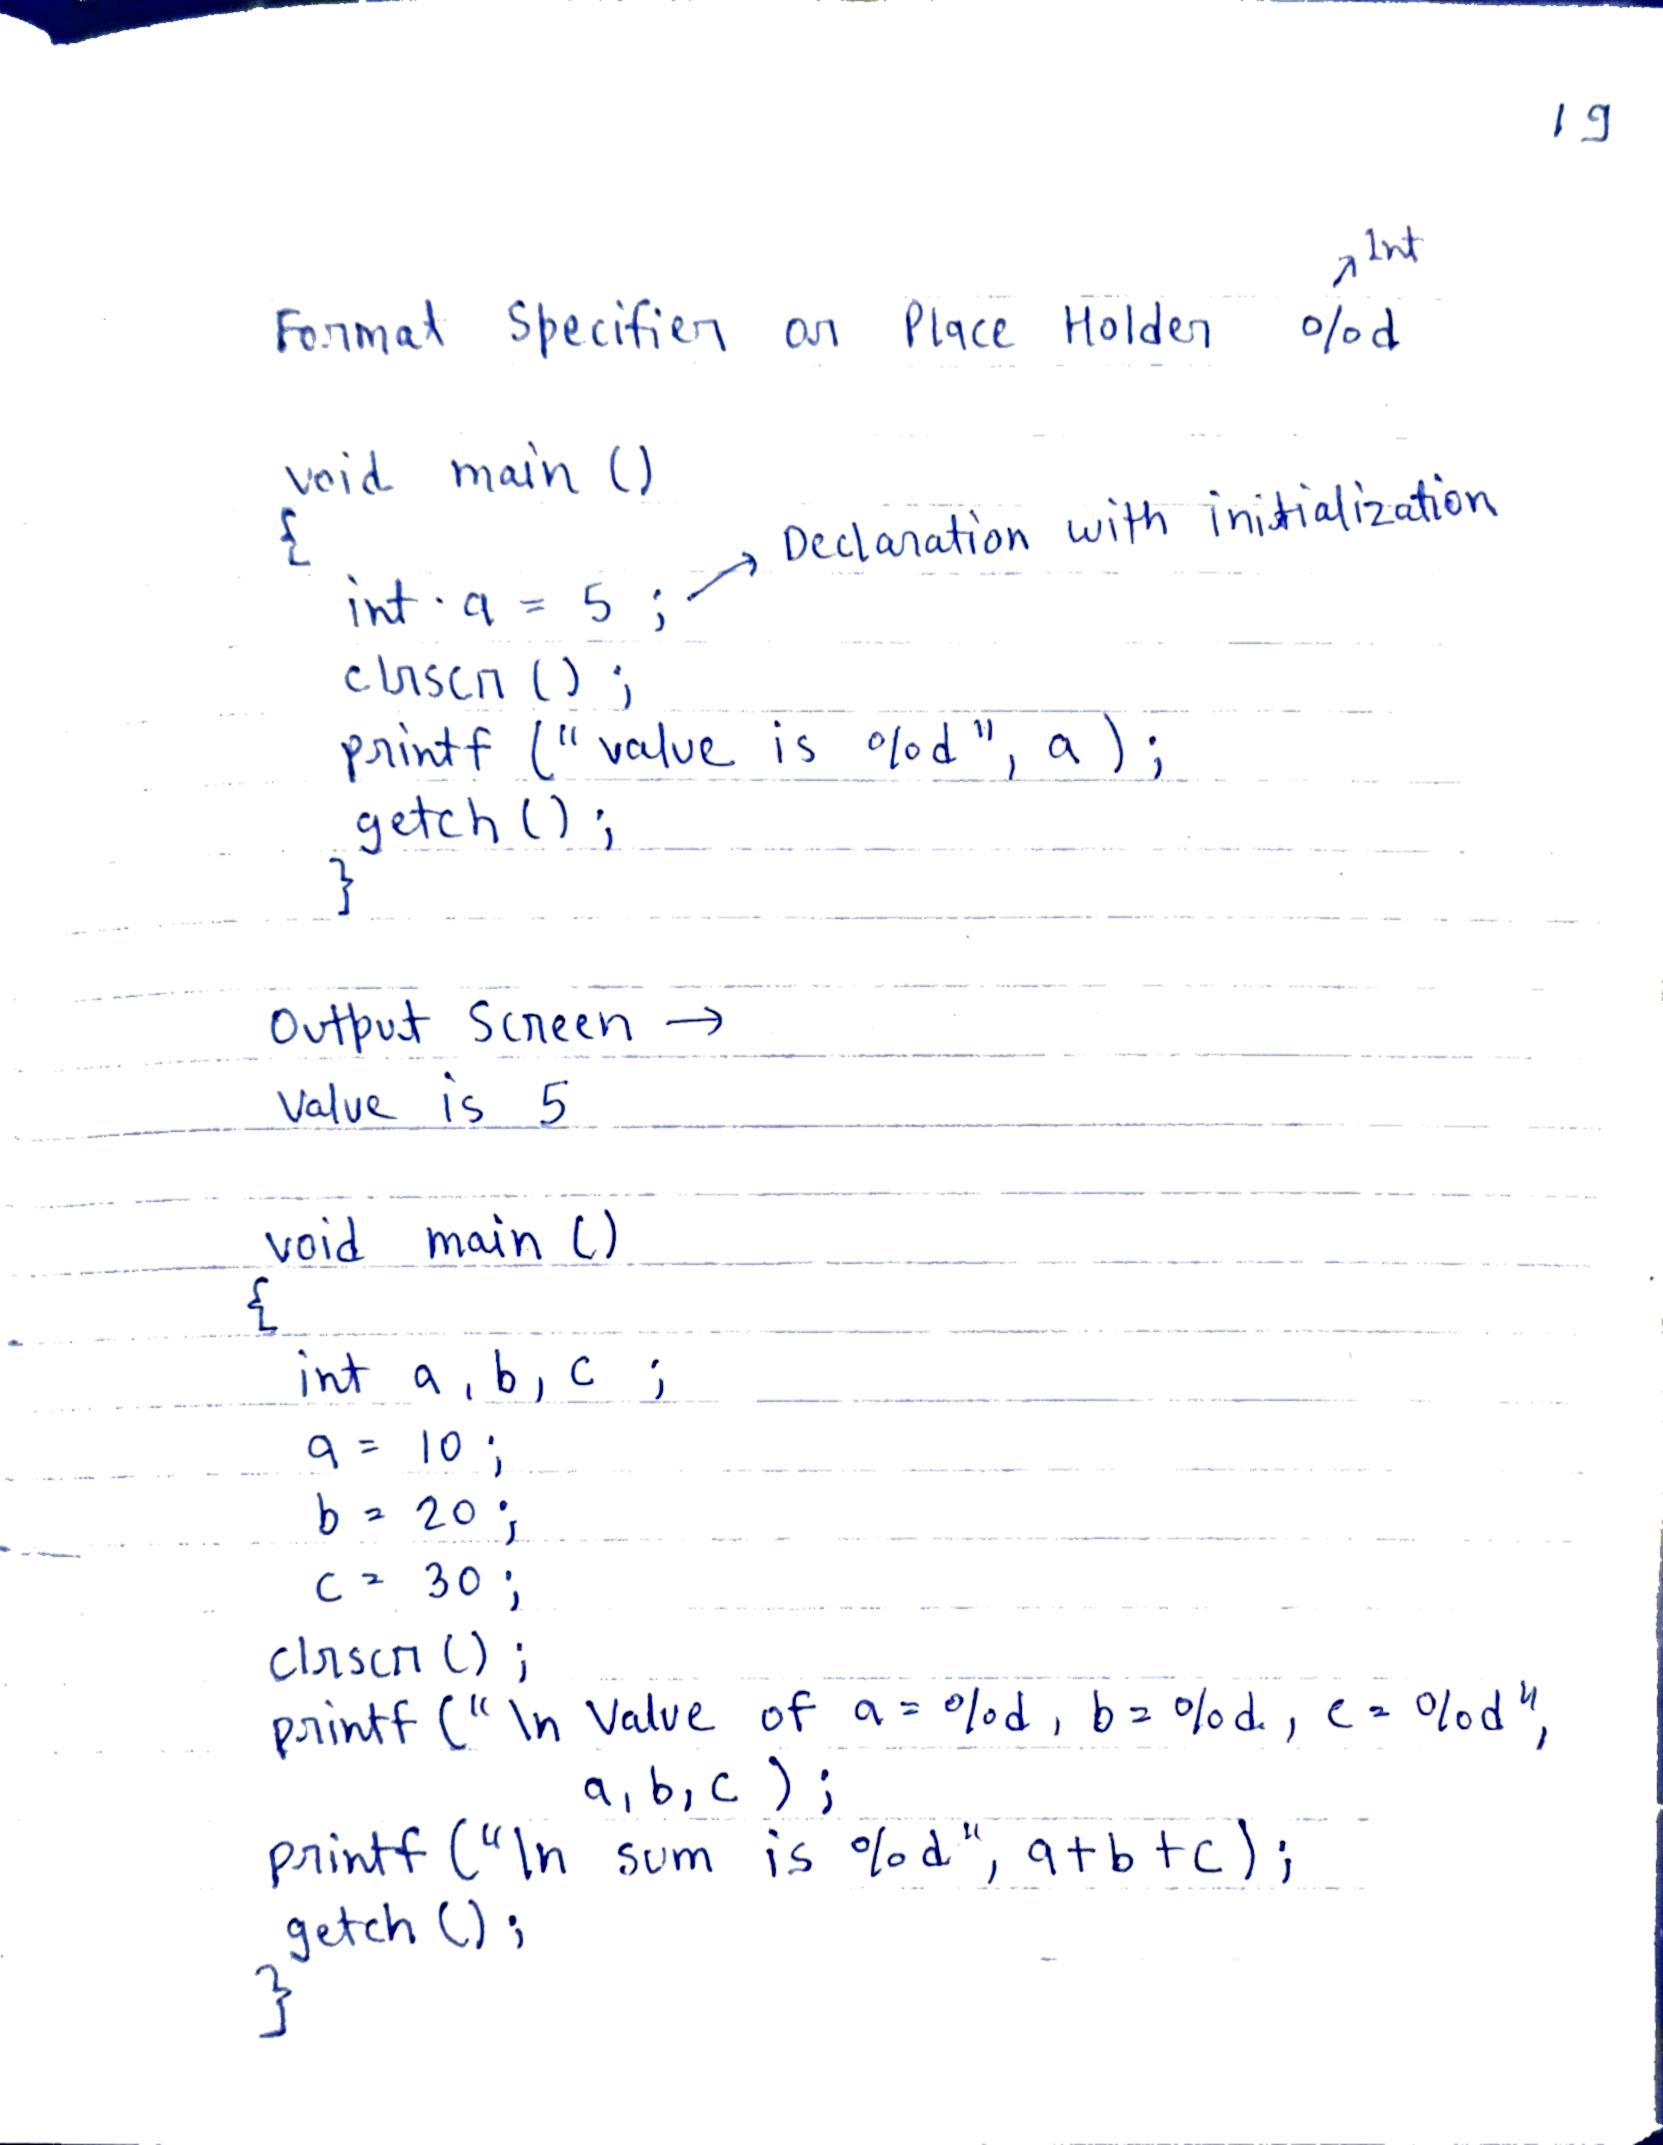 19
Int
Format Specifier or Place Holder %d
void main ()
{
Declaration with initialization
int a = 5 ;
clrscr () ;
printf ("value is %d", a ) ;
getch () ;
}
Output Screen →
Value is 5
void main ()
{
int a, b, c ;
a = 10 ;
b = 20 ;
c = 30 ;
clrscr () ;
printf ("\n Value of a = %d, b = %d, c = %d",
a, b, c ) ;
printf ("\n sum is %d", a+b+c) ;
getch () ;
}